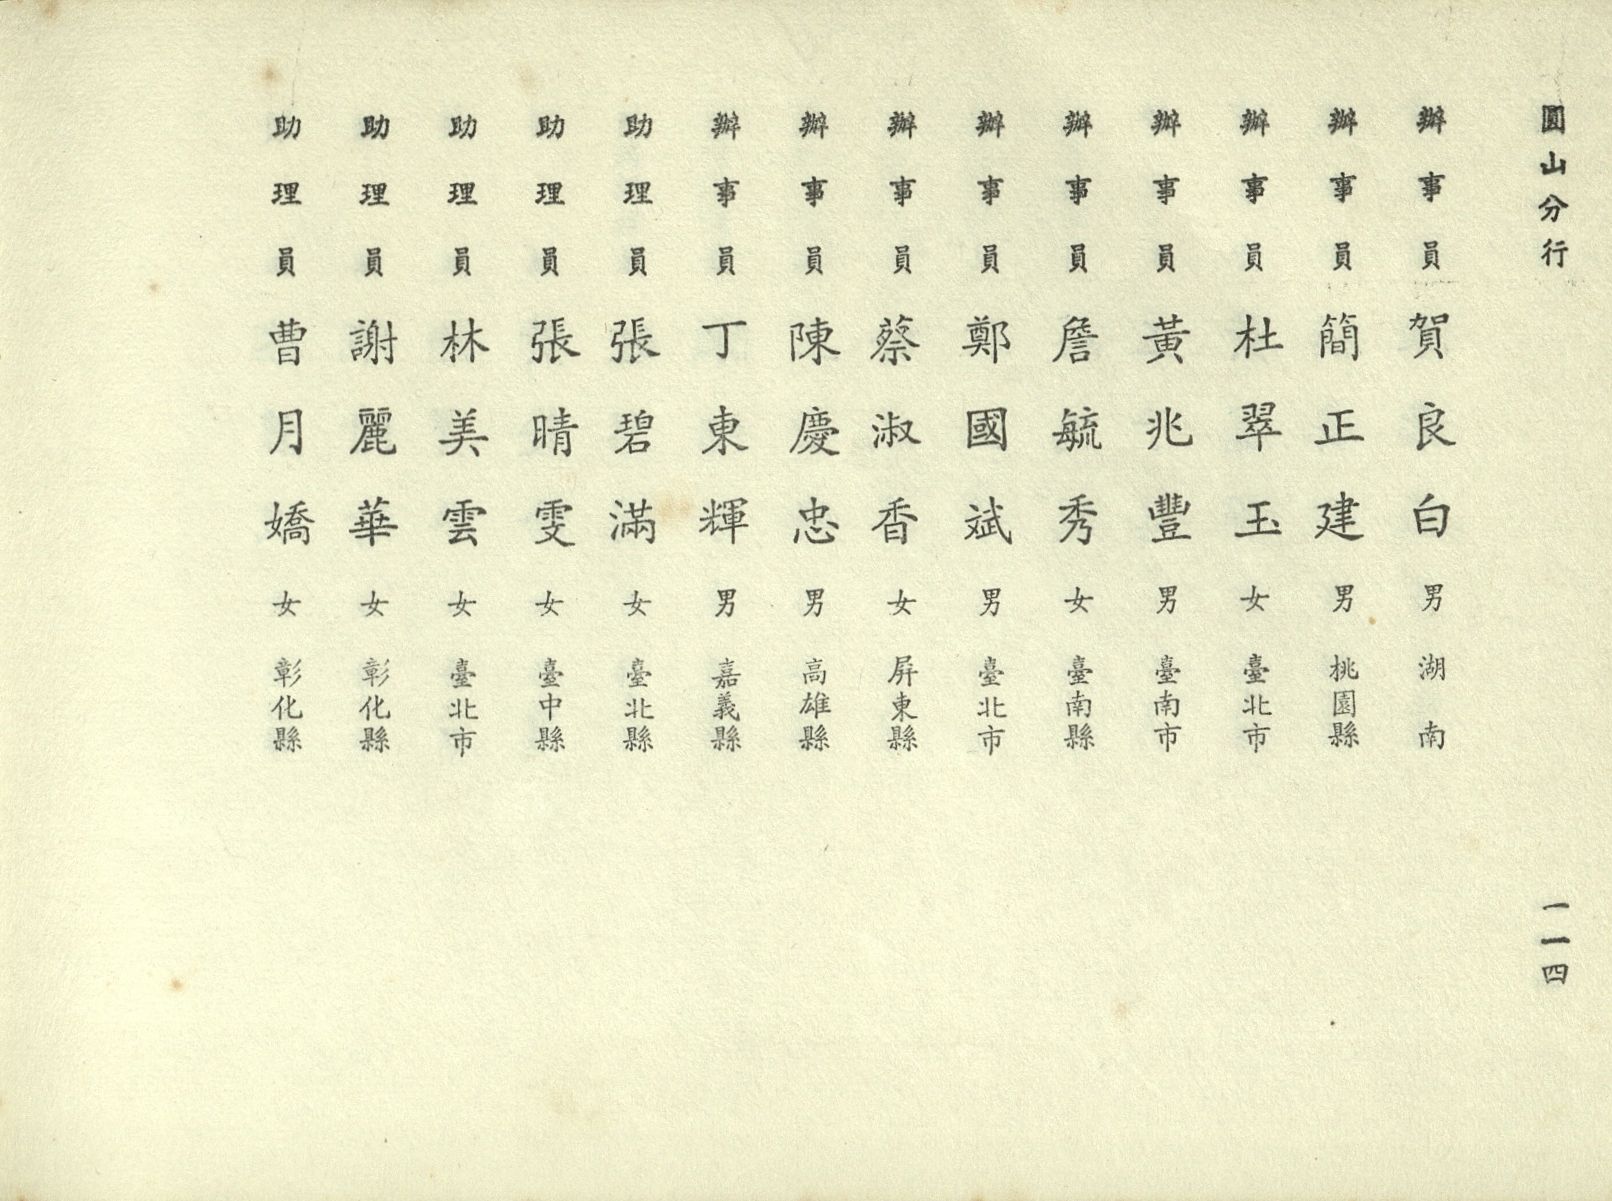 圓山分行
一一四
辦事員賀良白男湖南
辦事員簡正建男桃園縣
辦事員杜翠玉女臺北市
辦事員黃兆豐男臺南市
辦事員詹毓秀女臺南縣
辦事員鄭國斌男臺北市
辦事員蔡淑香女屏東縣
辦事員陳慶忠男高雄縣
辦事員丁東輝男嘉義縣
助理員張碧滿女臺北縣
助理員張晴雯女臺中縣
助理員林美雲女臺北市
助理員謝麗華女彰化縣
助理員曹月嬌女彰化縣